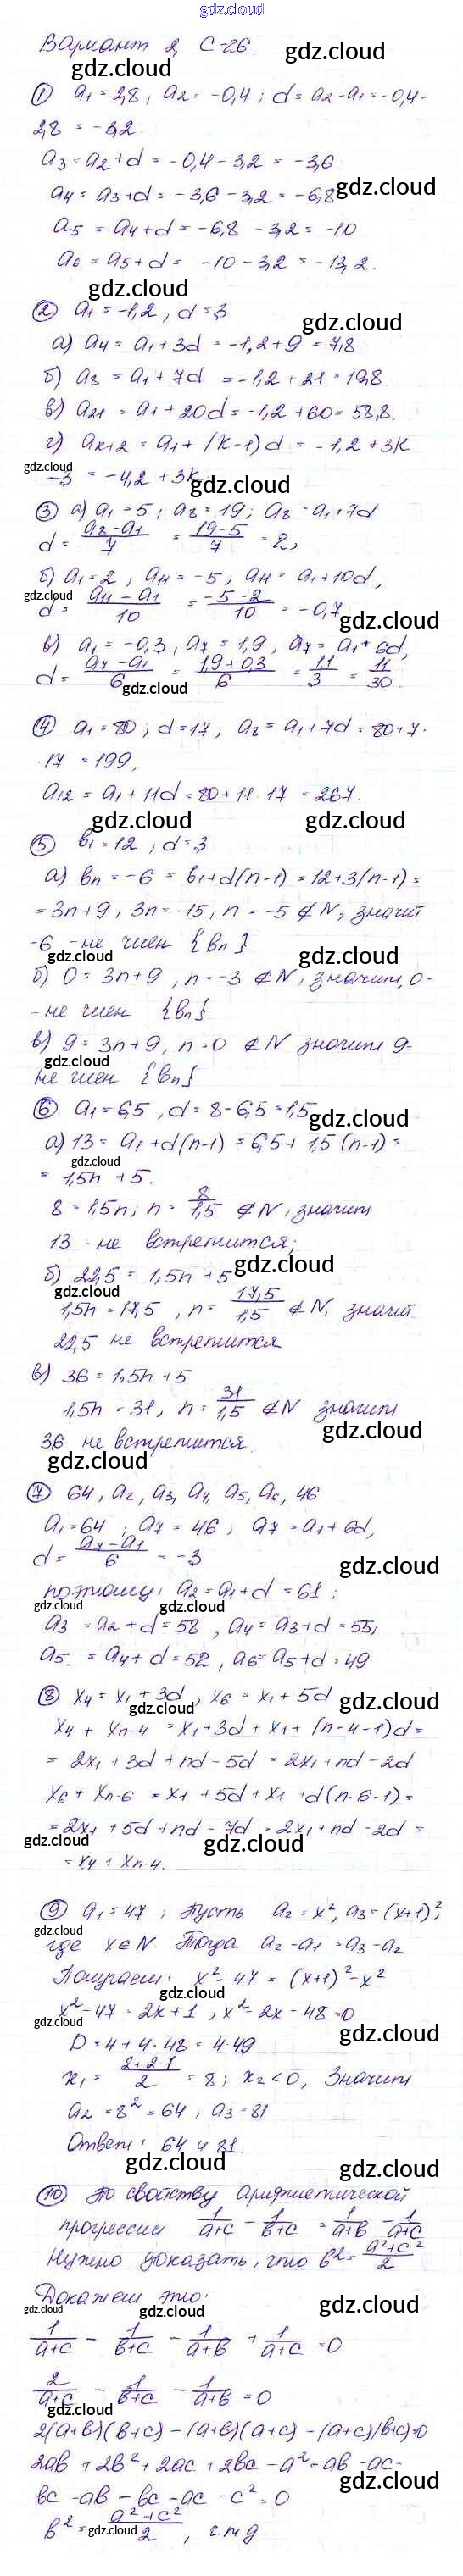 gdz.cloud
Вариант 2, С-26
gdz.cloud
gdz.cloud
① a₁ = 2,8, a₂ = -0,4; d = a₂ - a₁ = -0,4 -
2,8 = -3,2.
a₃ = a₂ + d = -0,4 - 3,2 = -3,6
a₄ = a₃ + d = -3,6 - 3,2 = -6,8
gdz.cloud
a₅ = a₄ + d = -6,8 - 3,2 = -10
a₆ = a₅ + d = -10 - 3,2 = -13,2.
gdz.cloud
② a₁ = -1,2, d = 3
gdz.cloud
а) a₄ = a₁ + 3d = -1,2 + 9 = 7,8
б) a₈ = a₁ + 7d = -1,2 + 21 = 19,8
в) a₂₁ = a₁ + 20d = -1,2 + 60 = 58,8.
г) aₖ₊₂ = a₁ + (k-1)d = -1,2 + 3k
gdz.cloud
-3 = -4,2 + 3k
gdz.cloud
③ а) a₁ = 5; a₈ = 19; a₈ = a₁ + 7d
d = (a₈ - a₁)/7 = (19 - 5)/7 = 2,
б) a₁ = 2, a₁₁ = -5, a₁₁ = a₁ + 10d,
gdz.cloud
d = (a₁₁ - a₁)/10 = (-5 - 2)/10 = -0,7
gdz.cloud
в) a₁ = -0,3, a₇ = 1,9, a₇ = a₁ + 6d,
d = (a₇ - a₁)/6 = (1,9 + 0,3)/6 = 11/3 = 11/30.
gdz.cloud
④ a₁ = 80; d = 17; a₈ = a₁ + 7d = 80 + 7 ·
· 17 = 199,
a₁₂ = a₁ + 11d = 80 + 11 · 17 = 267.
gdz.cloud
gdz.cloud
⑤ b₁ = 12, d = 3
а) bₙ = -6 = b₁ + d(n-1) = 12 + 3(n-1) =
= 3n + 9, 3n = -15, n = -5 ∉ N, значит
-6 - не член {bₙ}
gdz.cloud
gdz.cloud
б) 0 = 3n + 9, n = -3 ∉ N, значит, 0 -
- не член {bₙ}
в) 9 = 3n + 9, n = 0 ∉ N значит 9 -
gdz.cloud
не член {bₙ}
⑥ a₁ = 6,5, d = 8 - 6,5 = 1,5
gdz.cloud
а) 13 = a₁ + d(n-1) = 6,5 + 1,5(n-1) =
gdz.cloud
= 1,5n + 5.
8 = 1,5n, n = 8/1,5 ∉ N, значит
13 - не встретится;
gdz.cloud
б) 22,5 = 1,5n + 5
gdz.cloud
1,5n = 17,5, n = 17,5/1,5 ∉ N, значит
22,5 не встретится
в) 36 = 1,5n + 5
1,5n = 31, n = 31/1,5 ∉ N значит
gdz.cloud
36 не встретится
gdz.cloud
⑦ 64, a₂, a₃, a₄, a₅, a₆, 46
a₁ = 64, a₇ = 46; a₇ = a₁ + 6d,
d = (a₇ - a₁)/6 = -3
gdz.cloud
поэтому: a₂ = a₁ + d = 61;
gdz.cloud
gdz.cloud
a₃ = a₂ + d = 58, a₄ = a₃ + d = 55,
a₅ = a₄ + d = 52, a₆ = a₅ + d = 49
⑧ x₄ = x₁ + 3d, x₆ = x₁ + 5d
gdz.cloud
gdz.cloud
x₄ + xₙ₋₄ = x₁ + 3d + x₁ + (n-4-1)d =
= 2x₁ + 3d + nd - 5d = 2x₁ + nd - 2d
x₆ + xₙ₋₆ = x₁ + 5d + x₁ + d(n-6-1) =
= 2x₁ + 5d + nd - 7d = 2x₁ + nd - 2d =
gdz.cloud
gdz.cloud
= x₄ + xₙ₋₄.
⑨ a₁ = 47; Пусть a₂ = x², a₃ = (x+1)²,
gdz.cloud
где x ∈ N. Тогда a₂ - a₁ = a₃ - a₂
Получаем: x² - 47 = (x+1)² - x²
gdz.cloud
x² - 47 = 2x + 1, x² - 2x - 48 = 0
gdz.cloud
gdz.cloud
D = 4 + 4 · 48 = 4 · 49
x₁ = (2 + 2·7)/2 = 8; x₂ < 0, Значит
a₂ = 8² = 64, a₃ = 81
Ответ: 64 и 81.
gdz.cloud
gdz.cloud
⑩ По свойству арифметической
прогрессии 1/(a+c) - 1/(b+c) = 1/(a+b) - 1/(a+c)
Нужно доказать, что b² = (a² + c²)/2
Докажем это:
gdz.cloud
gdz.cloud
gdz.cloud
1/(a+c) - 1/(b+c) - 1/(a+b) + 1/(a+c) = 0
2/(a+c) - 1/(b+c) - 1/(a+b) = 0
gdz.cloud
2(a+b)(b+c) - (a+b)(a+c) - (a+c)(b+c) = 0
2ab + 2b² + 2ac + 2bc - a² - ab - ac -
gdz.cloud
bc - ab - bc - ac - c² = 0
b² = (a² + c²)/2, ч.т.д
gdz.cloud